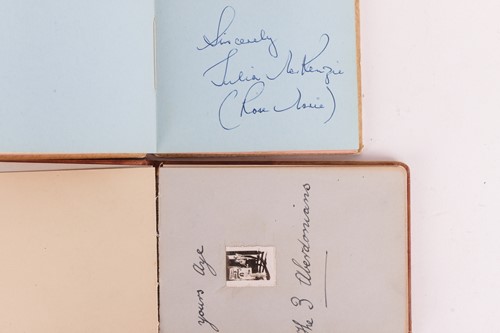 Sincerely
Julia McKenzie
(Rose Marie)
yours Aye
The 3 Aberdonians